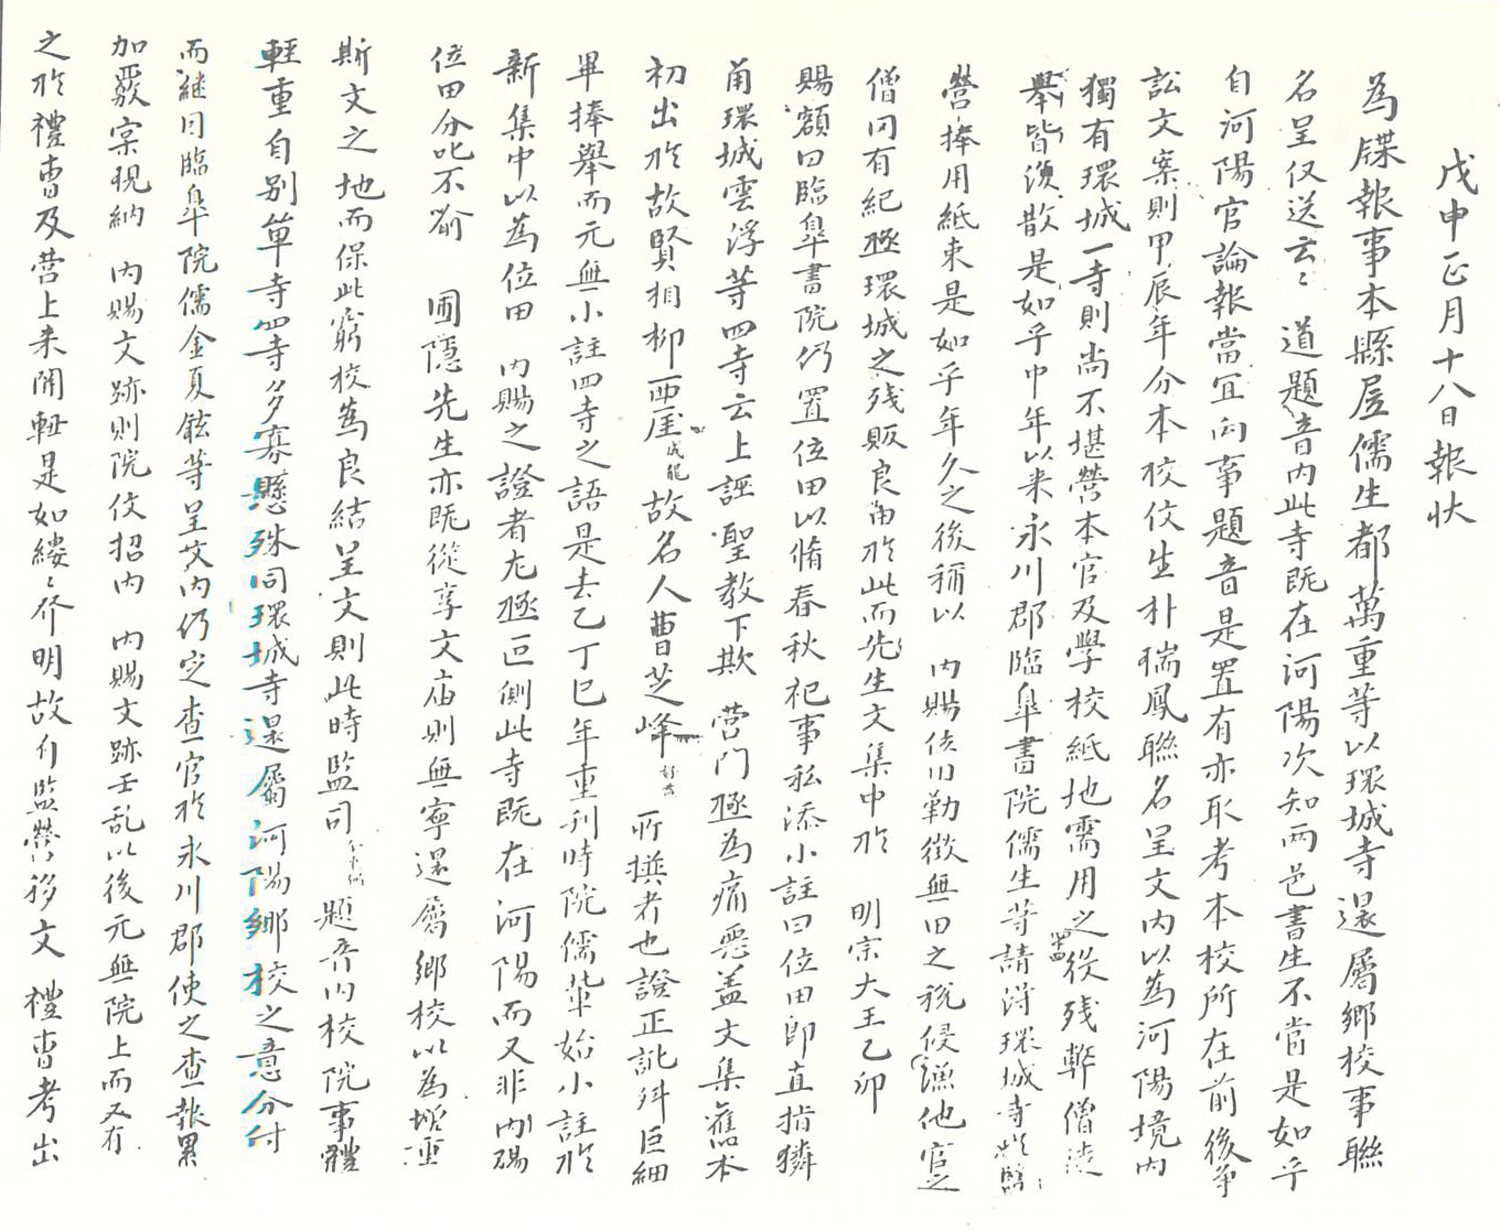 戊申正月十八日報狀
為牒報事本縣居儒生都萬重等以環城寺還屬鄉校事聯
名呈仅送云〻 道題音內此寺既在河陽次知兩邑書生不當是如乎
自河陽官論報當宜向事題音是置有亦取考本校所在前後爭
訟文案則甲辰年分本校佼生朴瑞鳳聯名呈文內以為河陽境內
獨有環城一寺則尚不堪營本官及學校紙地需用之役残幹僧徒
舉皆渙散是如乎中年以来永川郡臨皐書院儒生等請淂環城寺於
營捧用紙束是如乎年久之後稱以 內賜位田勒徵無田之税侵漁他官之
僧冈有紀極環城之残販良由於此而先生文集中於 明宗大王乙卯
賜額曰臨皐書院仍置位田以脩春秋祀事私添小註曰位田即直指隣
甬環城雲浮等四寺云上誣聖教下欺 营門極為痛惡盖文集舊本
初出於故賢相柳西崖成龍故名人曹芝峰好益所撰者也證正訛舛巨細
畢捧舉而元無小註四寺之語是去乙丁巳年重刊時院儒輩始小註於
新集中以為位田 內賜之證者尤極叵側此寺既在河陽而又非內賜
位田分叱不喻 圃隱先生亦既從享文庙則無寧還屬鄉校以為增重
斯文之地而保此窮校為良結呈文則此時監司 題音內校院事體
輕重自别箄寺四寺多寡懸殊同環城寺還屬河陽鄉校之意分付
而継因臨皐院儒金夏鉉等呈文內仍定查官於永川郡使之查報累
加覈案現納 內賜文跡則院伩招內 內賜文跡壬乱以後元無院上而又有
之於禮曺及营上来開軸是如縷〻仔明故自監營移文 禮曺考出